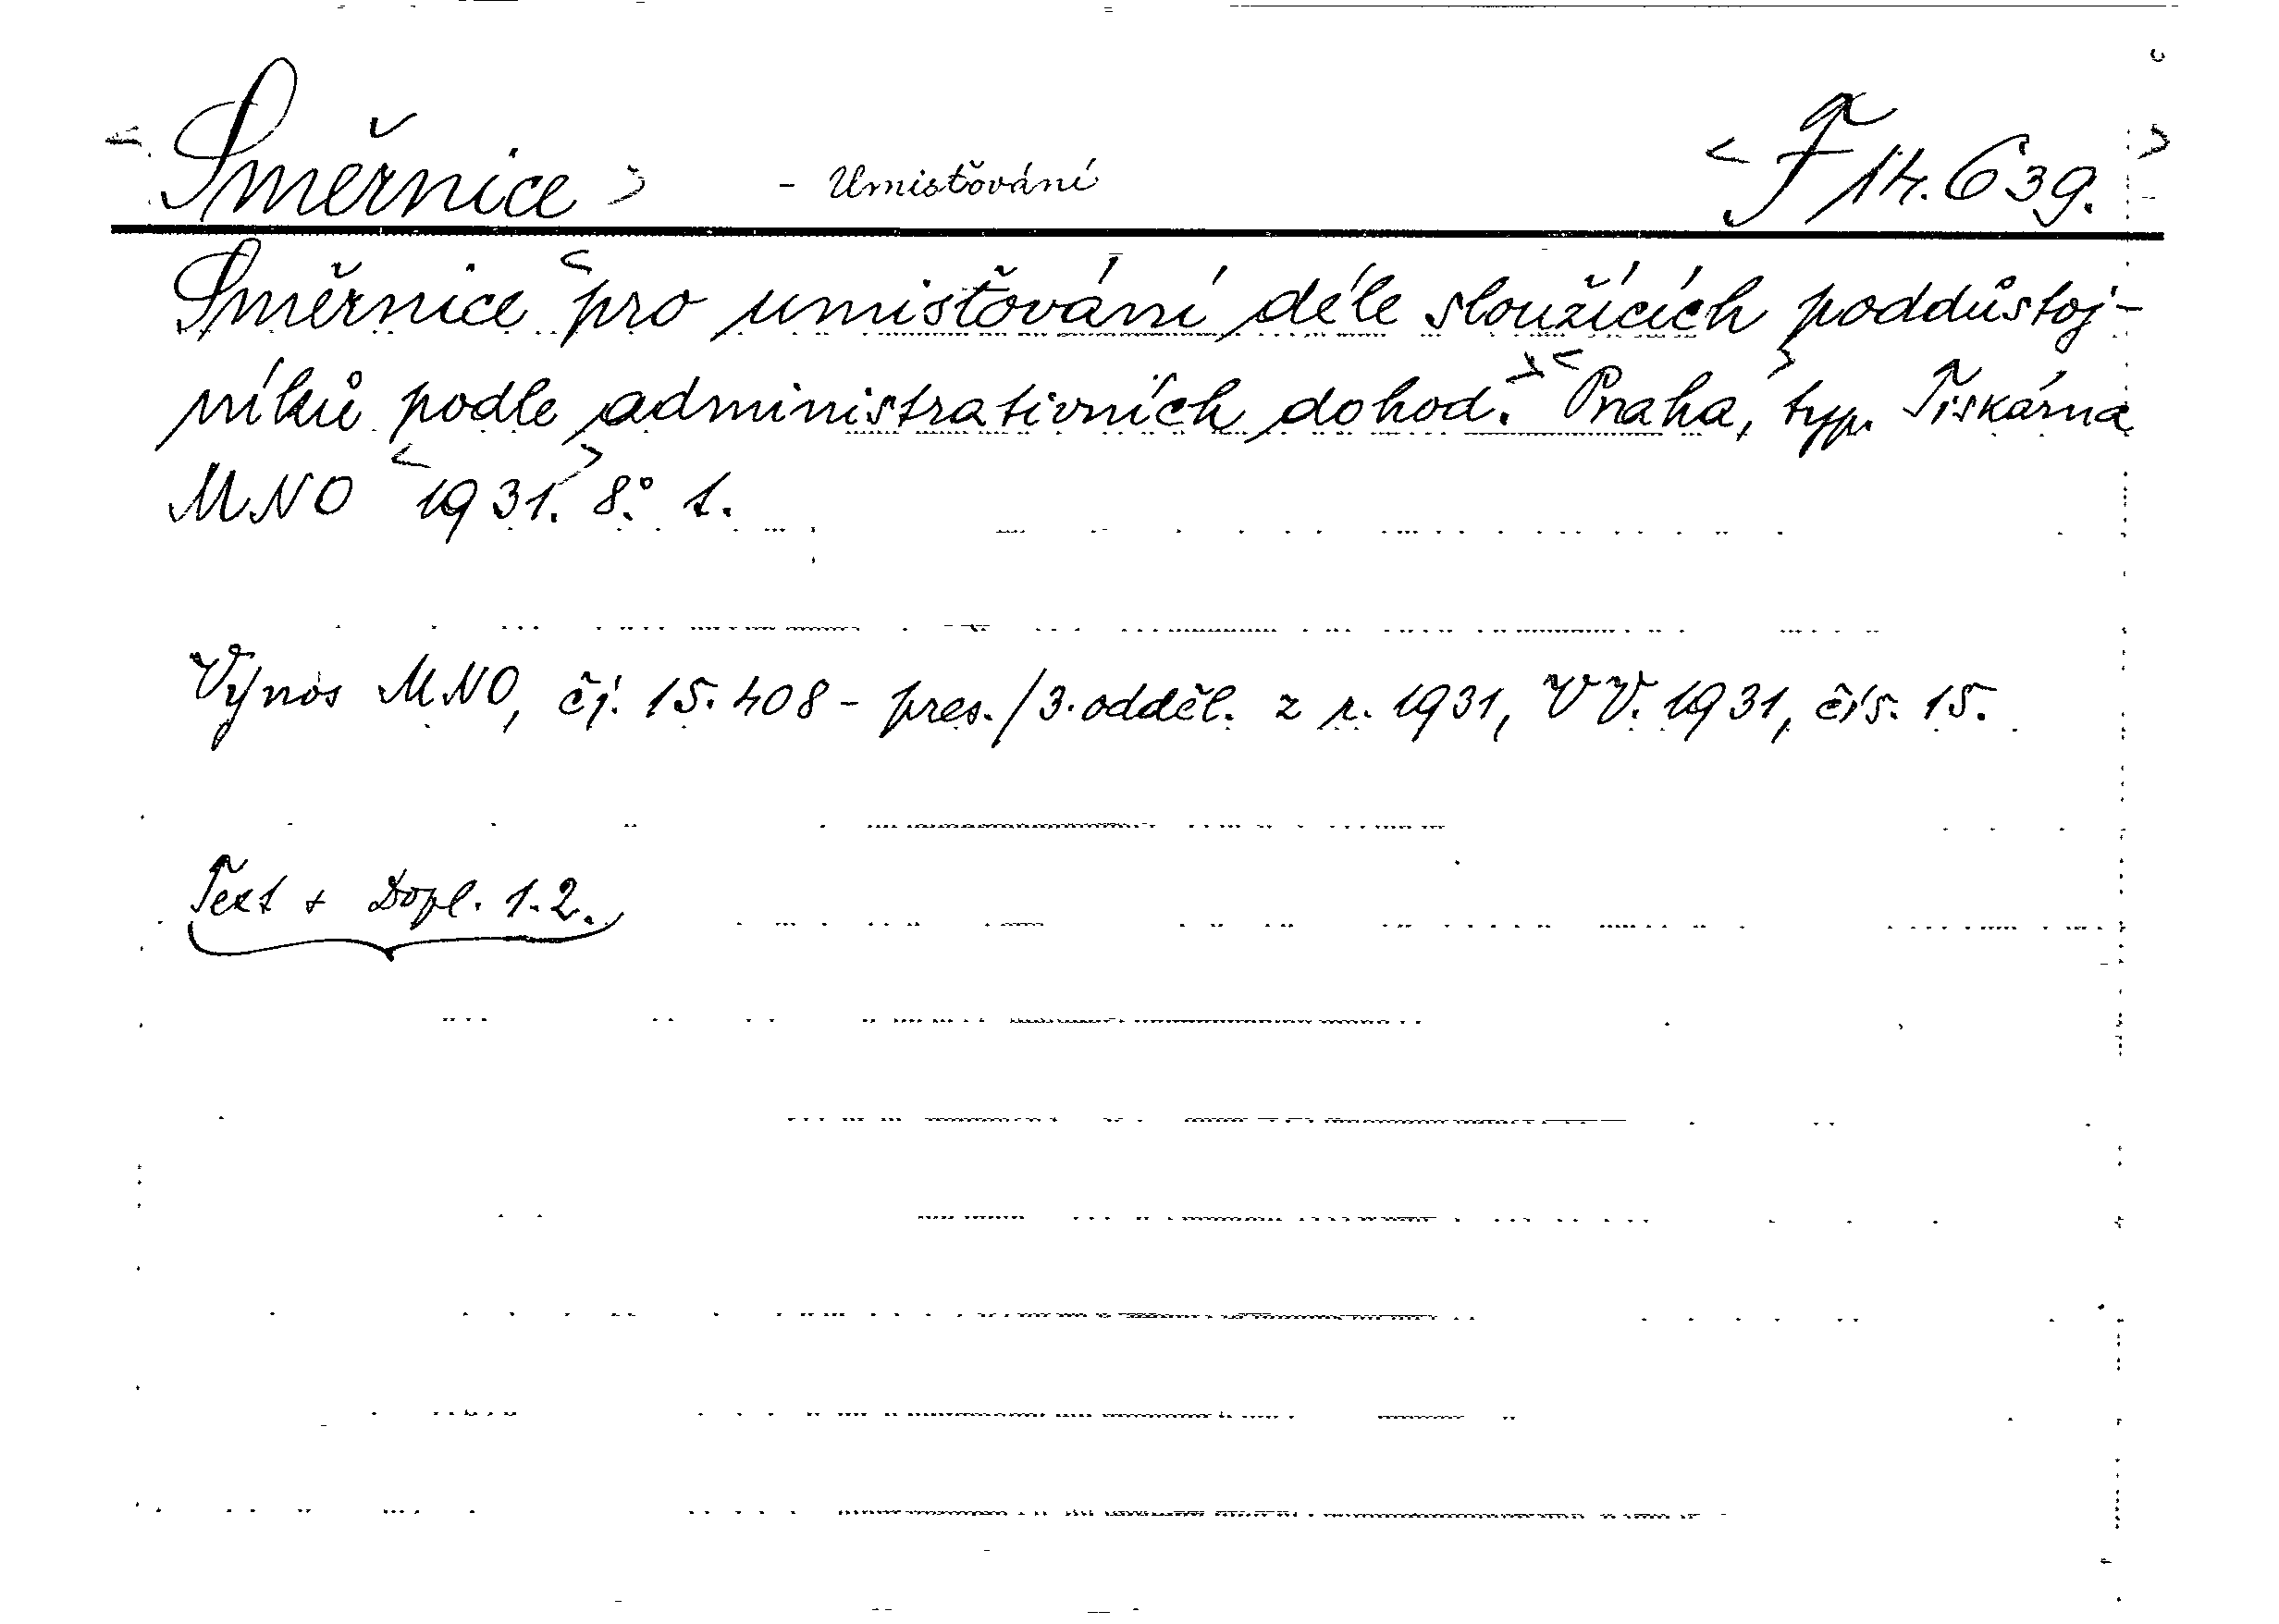 <Směrnice> - Umisťování <F 14.639.>
Směrnice <pro umisťování déle sloužících poddůstoj-
níků podle administrativních dohod.> <Praha,> typ. Tiskárna
MNO <1931.> 8.° 1.
Výnos MNO, čj. 15.408 - pres./3.odděl. z r. 1931, VV. 1931, čís. 15.
Text + Dopl. 1.2.